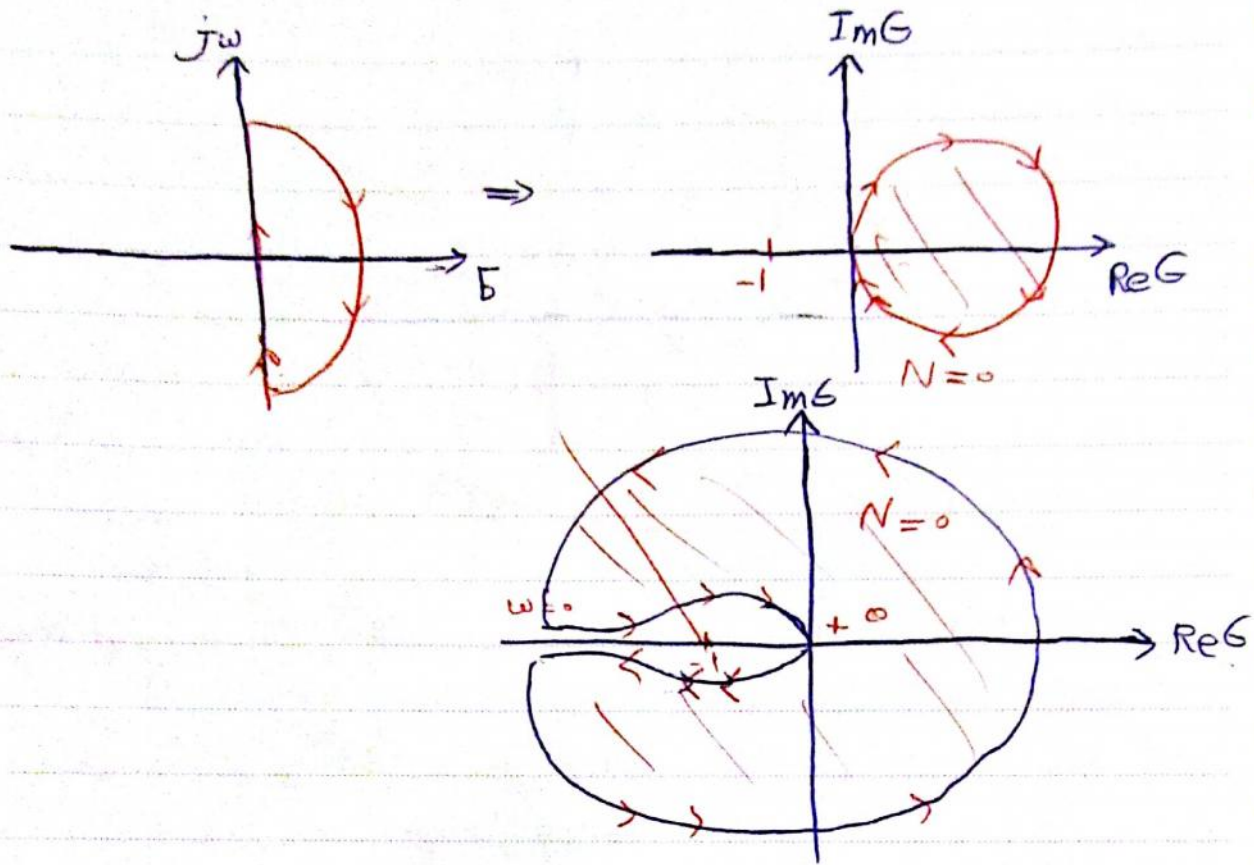 jω
ImG
⇒
-1
σ
ReG
N=0
ImG
N=0
ω=0
+∞
-1
ReG